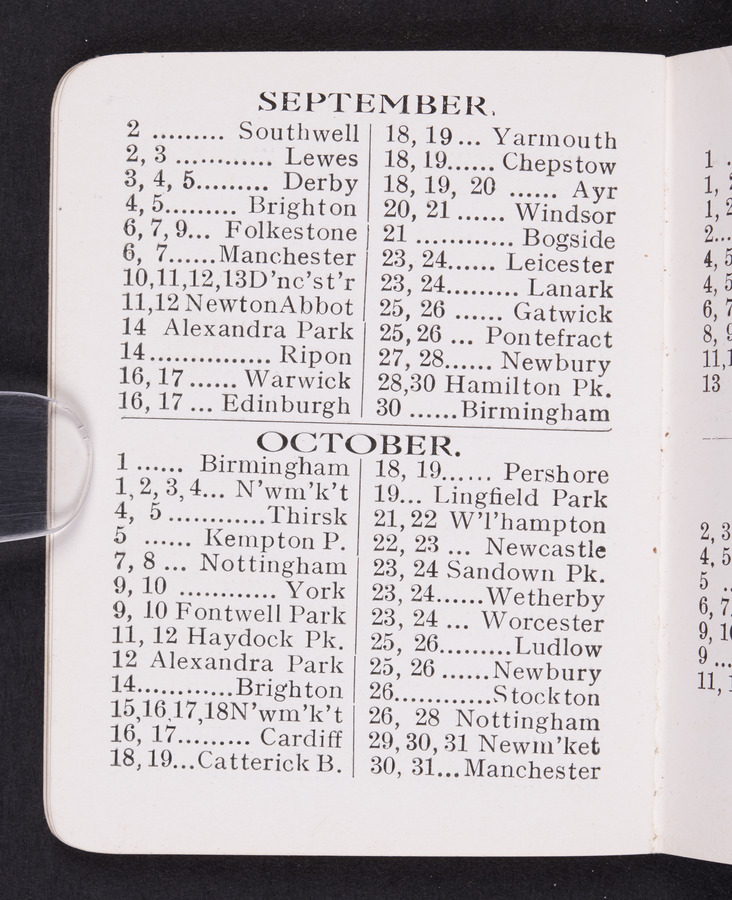 SEPTEMBER.
2 ......... Southwell
2, 3 ............ Lewes
3, 4, 5......... Derby
4, 5......... Brighton
6, 7, 9... Folkestone
6, 7......Manchester
10,11,12,13D'nc'st'r
11,12 NewtonAbbot
14 Alexandra Park
14............... Ripon
16, 17 ...... Warwick
16, 17 ... Edinburgh
18, 19... Yarmouth
18, 19...... Chepstow
18, 19, 20 ...... Ayr
20, 21 ...... Windsor
21 ............ Bogside
23, 24...... Leicester
23, 24......... Lanark
25, 26 ...... Gatwick
25, 26 ... Pontefract
27, 28...... Newbury
28,30 Hamilton Pk.
30 ......Birmingham
OCTOBER.
1 ...... Birmingham
1, 2, 3, 4... N'wm'k't
4, 5 ............Thirsk
5 ...... Kempton P.
7, 8 ... Nottingham
9, 10 ............ York
9, 10 Fontwell Park
11, 12 Haydock Pk.
12 Alexandra Park
14............Brighton
15,16,17,18N'wm'k't
16, 17......... Cardiff
18, 19...Catterick B.
18, 19...... Pershore
19... Lingfield Park
21, 22 W'l'hampton
22, 23 ... Newcastle
23, 24 Sandown Pk.
23, 24......Wetherby
23, 24 ... Worcester
25, 26.........Ludlow
25, 26 ......Newbury
26............Stockton
26, 28 Nottingham
29, 30, 31 Newm'ket
30, 31...Manchester
1
1,
1,
2...
4, 5
4, 5
6, 7
8,
11,
13
2, 3
4, 5
5
6, 7
9, 10
9 ...
11,